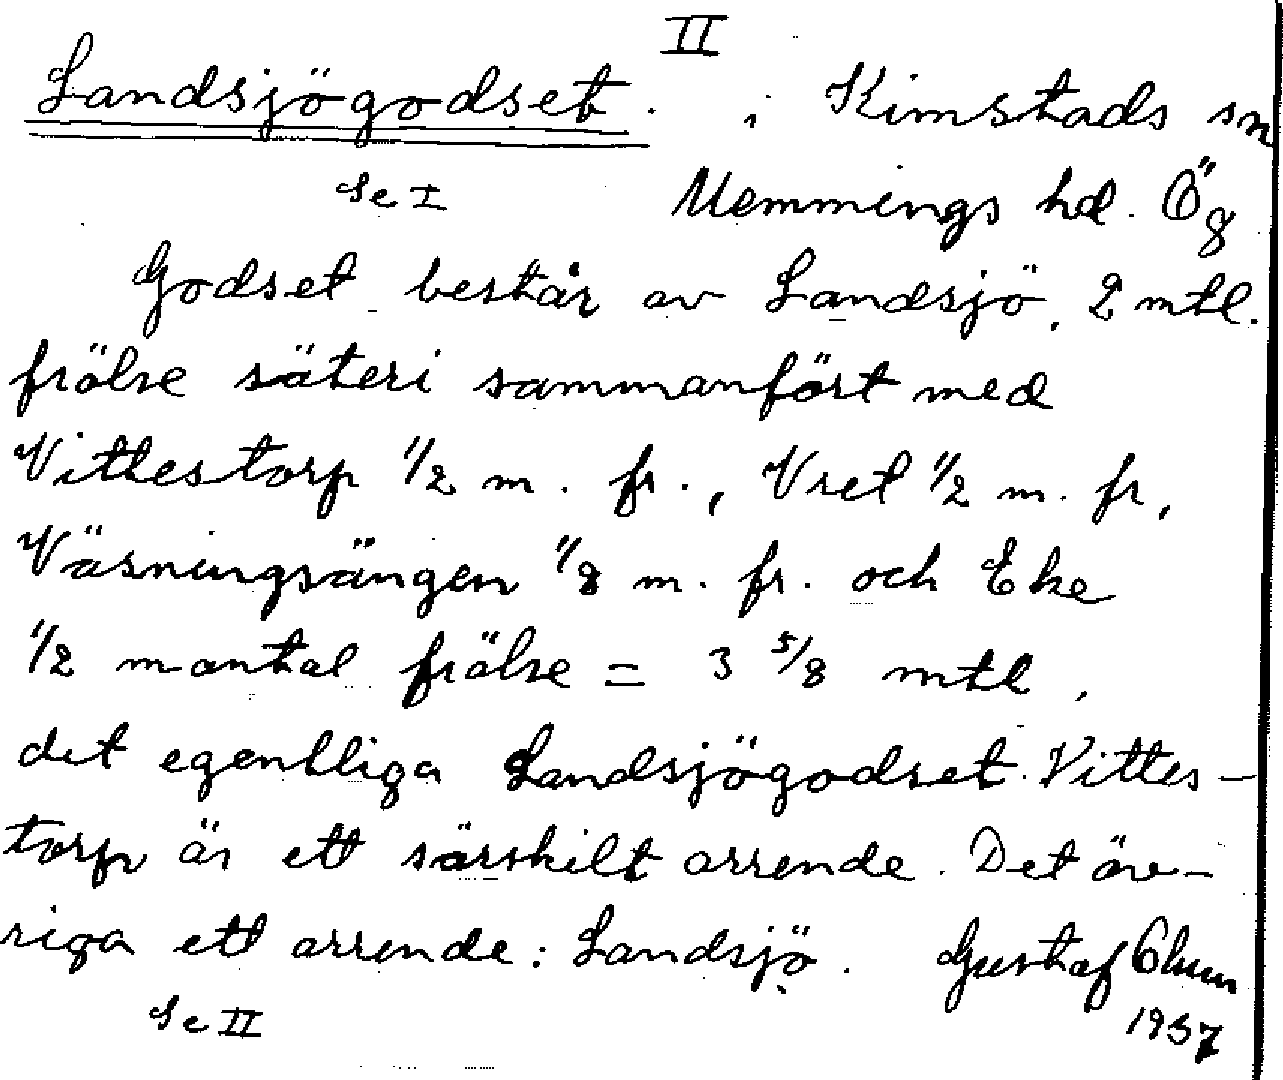 II
Landsjögodset. i Kimstads sn
Se I Memmings hd. Ög
Godset består av Landsjö, 2 mtl.
frälse säteri sammanfört med
Vittestorp 1/2 m. fr., Vret 1/2 m. fr,
Väsningsängen 1/8 m. fr. och Eke
1/2 mantal frälse = 3 5/8 mtl,
det egentliga Landsjögodset. Vittes-
torp är ett särskilt arrende. Det öv-
riga ett arrende: Landsjö. Gustaf
Se II 1937